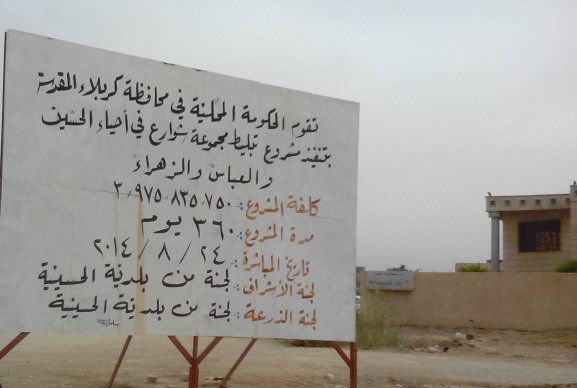 تقوم الحكومة المحلية في محافظة كربلاء المقدسة
بتنفيذ مشروع تبليط مجموعة شوارع في أحياء الحسين
والعباس والزهراء
كلفة المشروع: ٣،٩٧٥،٨٣٥،٧٥٠
مدة المشروع: ٣٦٠ يوم
تاريخ المباشرة: ٢٤ / ٨ / ٢٠١٤
لجنة الأشراف: لجنة من بلدية الحسينية
لجنة الذرعة: لجنة من بلدية الحسينية